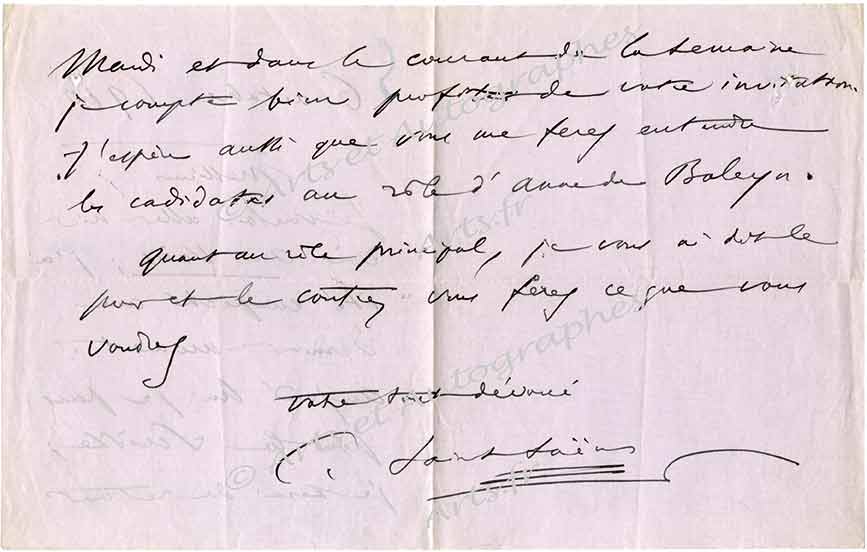 Mardi et dans le courant de la semaine
je compte bien profiter de votre invitation.
J'espère aussi que vous me ferez entendre
les cadidates au rôle d'Anne de Boleyn.
Quant au rôle principal, je vous ai dit le
pour et le contre, vous ferez ce que vous
voudrez
votre tout dévoué
C. Saint-Saëns
© Arts et Autographes
Arts.fr
© Arts et Autographes
Arts.fr